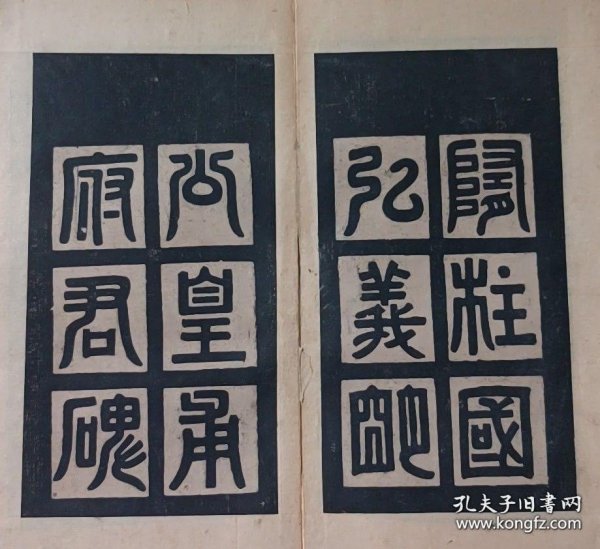 隋柱國
弘義朙
公皇甫
府君碑
孔夫子旧書网
www.kongfz.com